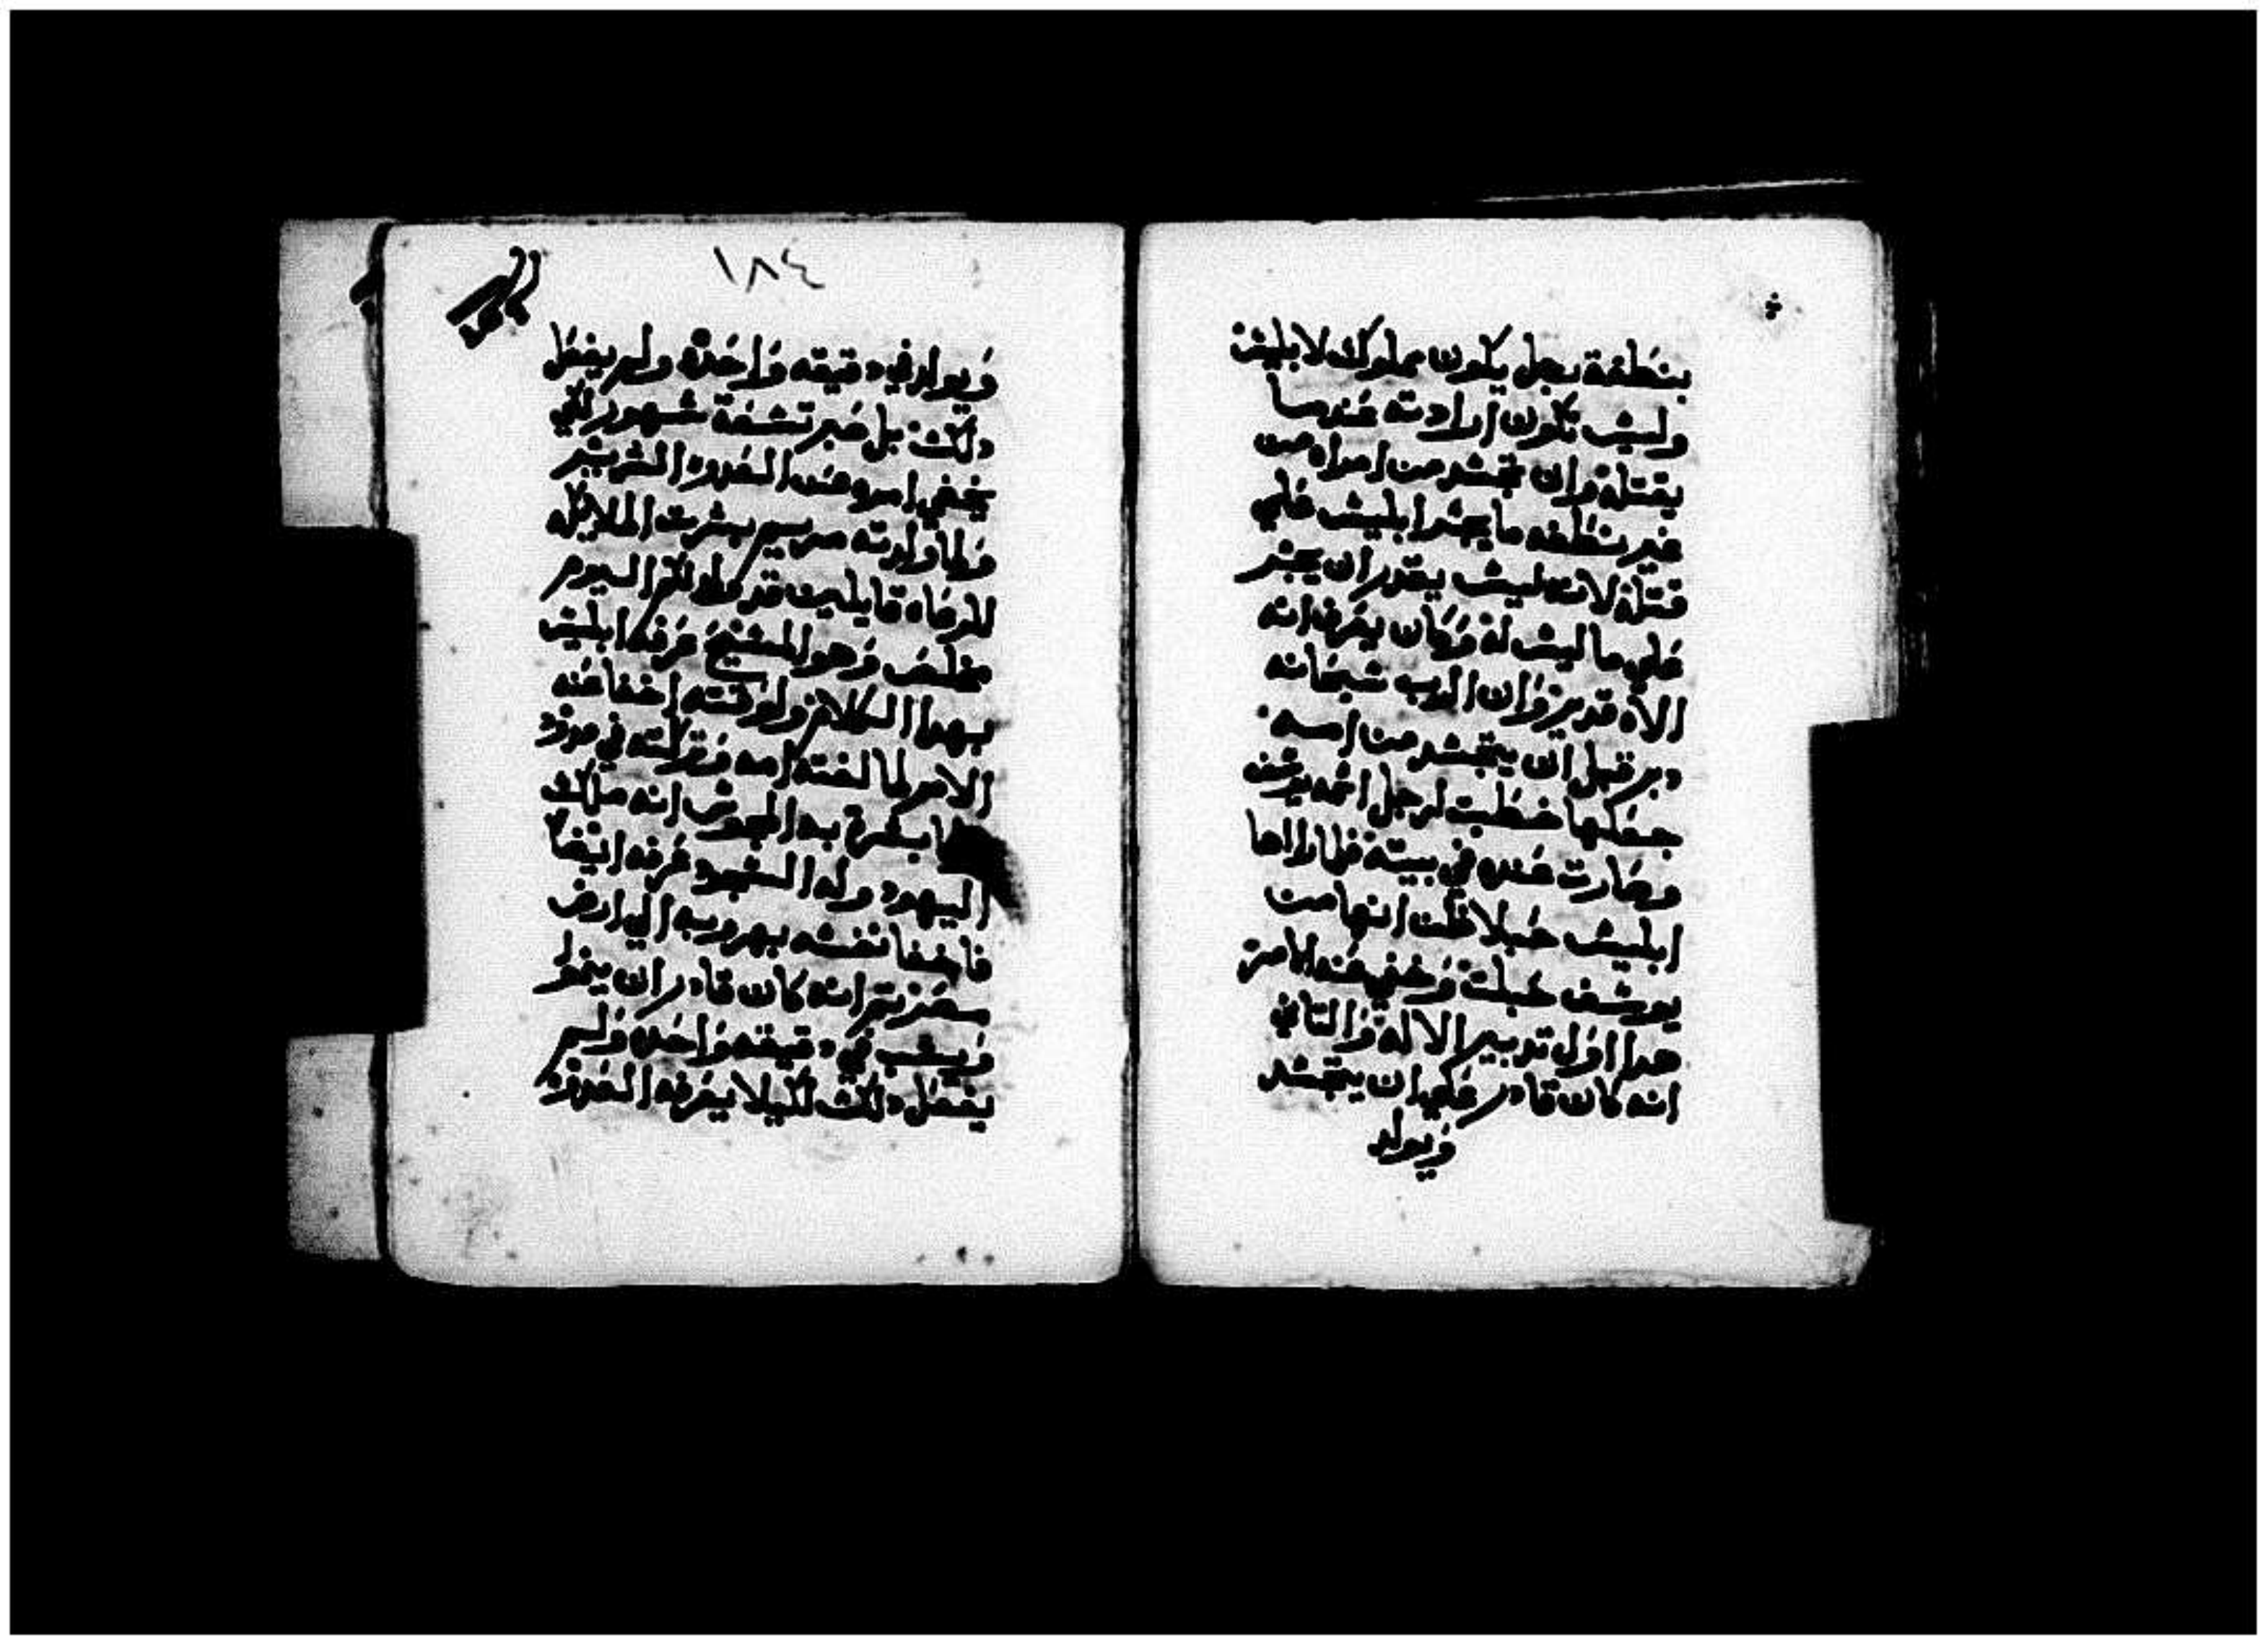 بنطفة رجل يكون مملوك لابليس
وليس تكون ارادته عندما
يقتله وان تجسد من امراه من
غير نطفه ما يجسر ابليس علي
قتله لانه ليس يقدر ان يجسر
علي ما ليس له وكان يعرف انه
الاه قدير وان الرب سبحانه
دبر قبل ان يتجسد من امه
جعلها خطبت لرجل اسمه يوسف
وصارت عنده في بيته فلما رااها
ابليس حبلا ظن انها من
يوسف حبلت وخفي عنه الامر
هدا اول تدبير الاله والتاني
انه كان قادر علي ان يتجسد
ويولد
١٨٤
ويولد في دقيقه واحده ولم يفعل
دلك بل صبر تسعة شهور لكي
يخفي امره عن العدو الشرير
ولما ولدته مريم بشرت الملايكه
للرعاه قايلين قد ولد لكم اليوم
مخلص وهو المسيح عرفه ابليس
بهدا الكلام ولوقته اخفا عنه
الامر لما لفته امه وتركته في مزود
بشرة به المجوس انه ملك
اليهود وله السجود عرفه ايضا
فاخفا نفسه بهروبه الي ارض
مصر تم انه كان قادر ان
ويشب في دقيقه واحده ولم
يفعل دلك لكيلا يعرفه العدو